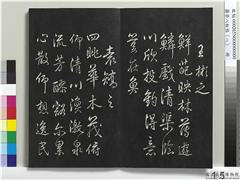 王彬之
鮮葩映林薄遊
鱗戲清渠臨
川欣投釣得意
豈在魚
袁嶠之
四眺華木茂俯
仰清川渙激泉
流芳醪豁爾累
心散仰想逸民